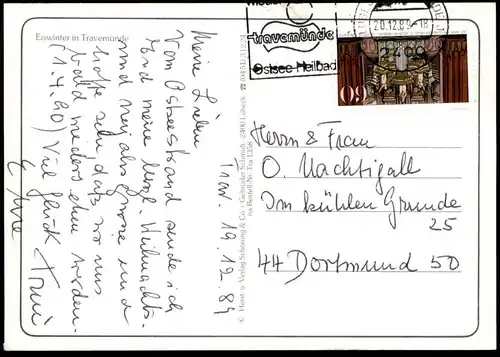 Eiswinter in Travemünde
Trav. 19.12.89
Meine Lieben
Vom Ostseestrand sende ich
Euch meine herzl. Weihnachts-
und Neujahrsgrüsse und
hoffe sehr daß wir uns
bald wiedersehen werden.
(1.4.90) Viel Glück
Eure
© Herst. u. Verlag Schöning & Co. + Gebrüder Schmidt · 2400 Lübeck
travemünde
Ostsee Heilbad
20.12.89-18
60
Herrn & Frau
O. Nachtigall
Im kühlen Grunde
25
44 Dortmund 50